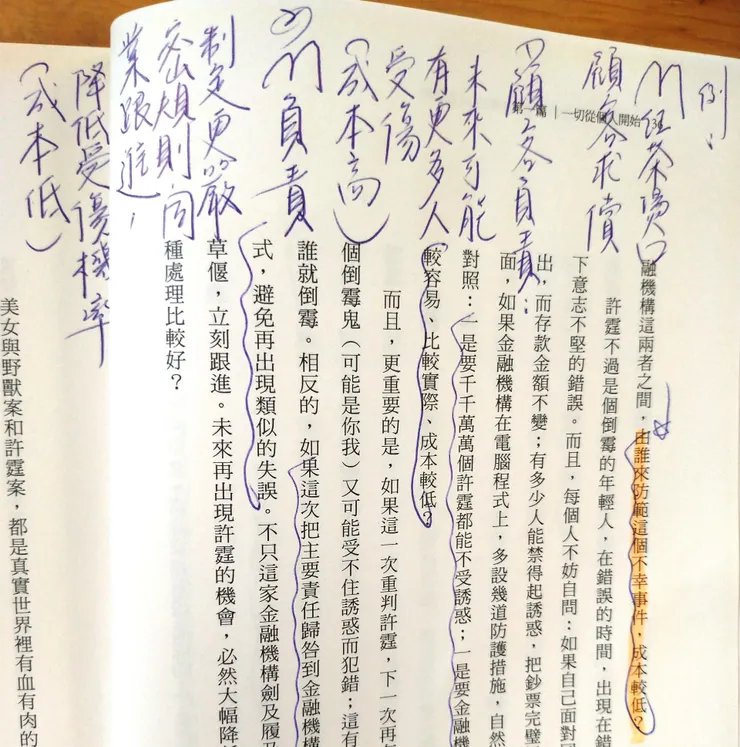 例：
M 紅茶燙口
顧客求償
1) 顧客負責：
未來可能
有更多人
受傷
(成本高)
2) M 負責
制定更嚴
密規則，同
業跟進，
降低受傷機率
(成本低)
第一篇｜一切從個人開始
融機構這兩者之間，由誰來防範這個不幸事件，成本較低？
許霆不過是個倒霉的年輕人，在錯誤的時間，出現在錯
下意志不堅的錯誤。而且，每個人不妨自問：如果自己面對
出，而存款金額不變；有多少人能禁得起誘惑，把鈔票完璧
面，如果金融機構在電腦程式上，多設幾道防護措施，自然
對照：一是要千千萬萬個許霆都能不受誘惑；一是要金融機
較容易、比較實際、成本較低？
而且，更重要的是，如果這一次重判許霆，下一次再
個倒霉鬼（可能是你我）又可能受不住誘惑而犯錯；這有
誰就倒霉。相反的，如果這次把主要責任歸咎到金融機構
式，避免再出現類似的失誤。不只這家金融機構劍及履及
草偃，立刻跟進。未來再出現許霆的機會，必然大幅降
種處理比較好？
美女與野獸案和許霆案，都是真實世界裡有血有肉的